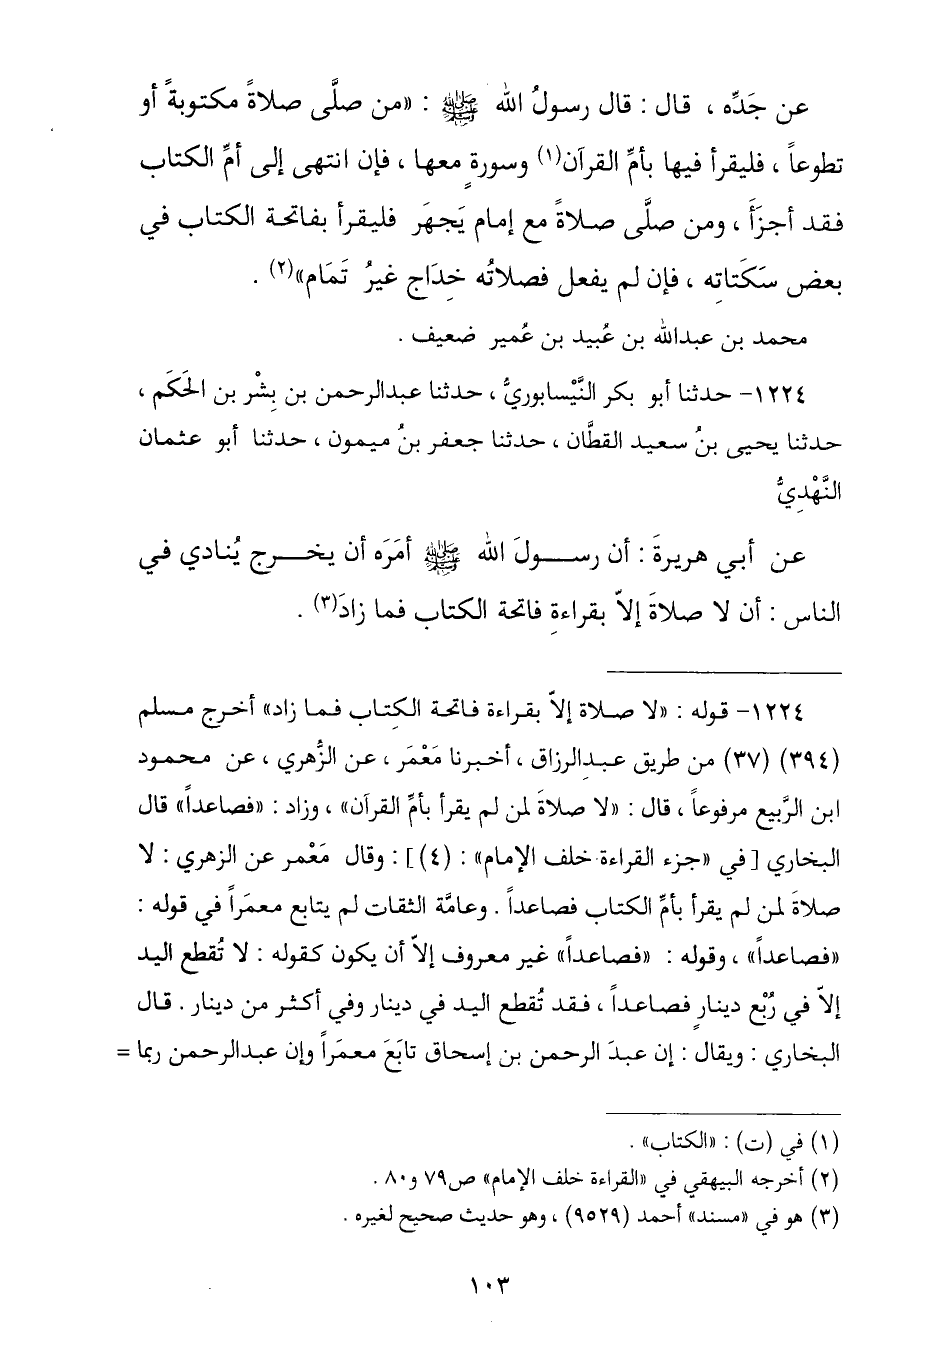 عن جَدِّه ، قال : قال رسولُ الله ﷺ : «من صلَّى صلاةً مكتوبةً أو
تطوعاً ، فليقرأ فيها بأمِّ القرآن(١) وسورةٍ معها ، فإن انتهى إلى أمِّ الكتاب
فقد أجزَأَ ، ومن صلَّى صلاةً مع إمام يَجهَر فليقرأ بفاتحة الكتاب في
بعض سَكَتاتِه ، فإن لم يفعل فصلاتُه خِدَاج غيرُ تَمَام»(٢) .
محمد بن عبدالله بن عُبيد بن عُمير ضعيف .
١٢٢٤- حدثنا أبو بكر النَّيْسابوريُّ ، حدثنا عبدالرحمن بن بِشْر بن الحَكَم ،
حدثنا يحيى بنُ سعيد القطَّان ، حدثنا جعفر بنُ ميمون ، حدثنا أبو عثمان
النَّهْدِيُّ
عن أبي هريرةَ : أن رسـولَ الله ﷺ أمَرَه أن يخـرج يُنادي في
الناس : أن لا صلاةَ إلاّ بقراءةِ فاتحة الكتاب فما زادَ(٣) .
١٢٢٤- قوله : «لا صلاة إلاّ بقراءة فاتحة الكتاب فما زاد» أخرج مسلم
(٣٩٤) (٣٧) من طريق عبدالرزاق ، أخبرنا مَعْمَر ، عن الزُّهري ، عن محمود
ابن الرَّبيع مرفوعاً ، قال : «لا صلاةَ لمن لم يقرأ بأمِّ القرآن» ، وزاد : «فصاعداً» قال
البخاري [في «جزء القراءة خلف الإمام» : (٤)] : وقال مَعْمر عن الزهري : لا
صلاةَ لمن لم يقرأ بأمِّ الكتاب فصاعداً . وعامَّة الثقات لم يتابع معمَراً في قوله :
«فصاعداً» ، وقوله : «فصاعداً» غير معروف إلاّ أن يكون كقوله : لا تُقطع اليد
إلاّ في رُبْع دينارٍ فصاعداً ، فقد تُقطع اليد في دينار وفي أكثر من دينار . قال
البخاري : ويقال : إن عبدَ الرحمن بن إسحاق تابَعَ معمَراً وإن عبدالرحمن ربما =
(١) في (ت) : «الكتاب» .
(٢) أخرجه البيهقي في «القراءة خلف الإمام» ص٧٩ و٨٠ .
(٣) هو في «مسند» أحمد (٩٥٢٩) ، وهو حديث صحيح لغيره .
١٠٣